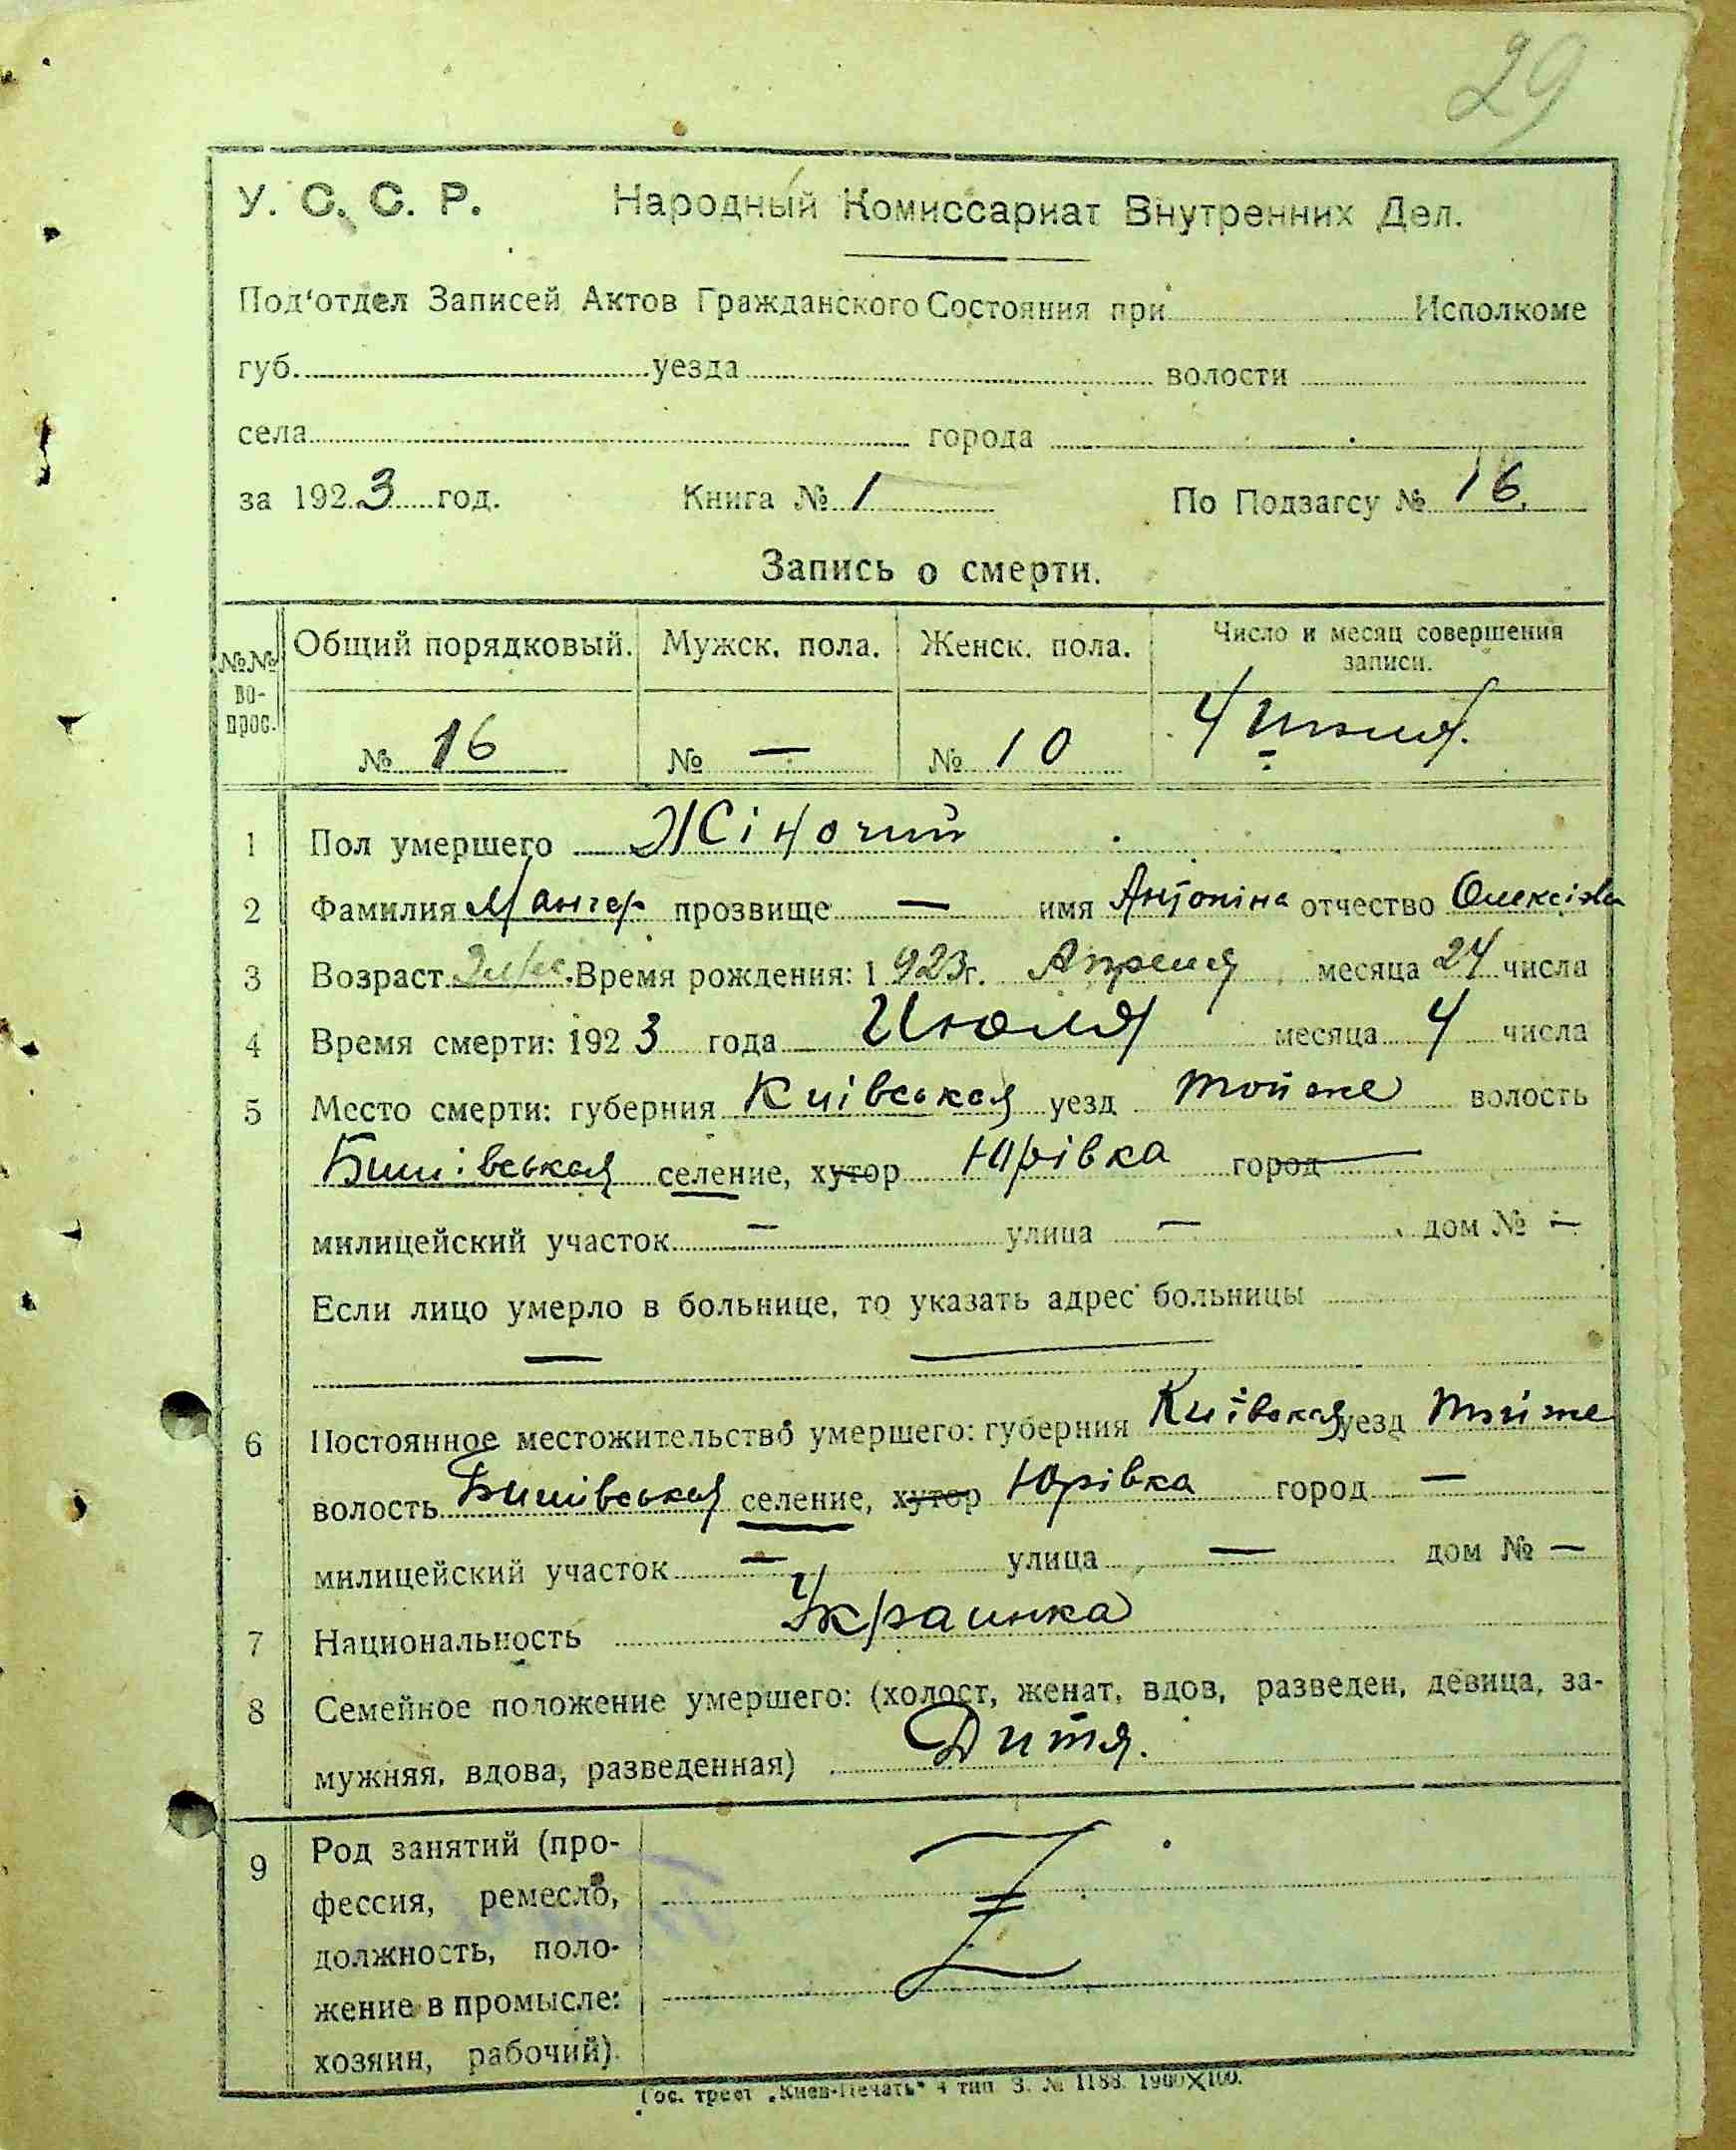 29
У. С. С. Р. Народный Комиссариат Внутренних Дел.
Под'отдел Записей Актов Гражданского Состояния при Исполкоме
губ. уезда волости
села города
за 1923 год. Книга № 1 По Подзагсу № 16.
Запись о смерти.
№№ во-прос. Общий порядковый. Мужск. пола. Женск. пола. Число и месяц совершения записи.
№ 16 № — № 10 4 Июля.
1 Пол умершего Жіночий
2 Фамилия прозвище — имя Антоніна отчество Олексієва
3 Возраст Время рождения: 1923г. Апреля месяца 24 числа
4 Время смерти: 1923 года Июля месяца 4 числа
5 Место смерти: губерния Київская уезд тойже волость
Бишівськая селение, хутор Юрівка город
милицейский участок — улица — дом № —
Если лицо умерло в больнице, то указать адрес больницы
— —
6 Постоянное местожительство умершего: губерния Київская уезд тойже
волость Бишівськая селение, хутор Юрівка город —
милицейский участок — улица — дом № —
7 Национальность Украинка
8 Семейное положение умершего: (холост, женат, вдов, разведен, девица, за-
мужняя, вдова, разведенная) Дитя.
9 Род занятий (про-
фессия, ремесло,
должность, поло-
жение в промысле:
хозяин, рабочий).
Гос. трест „Киев-Печать" 4 тип З. № 1188. 1900×100.